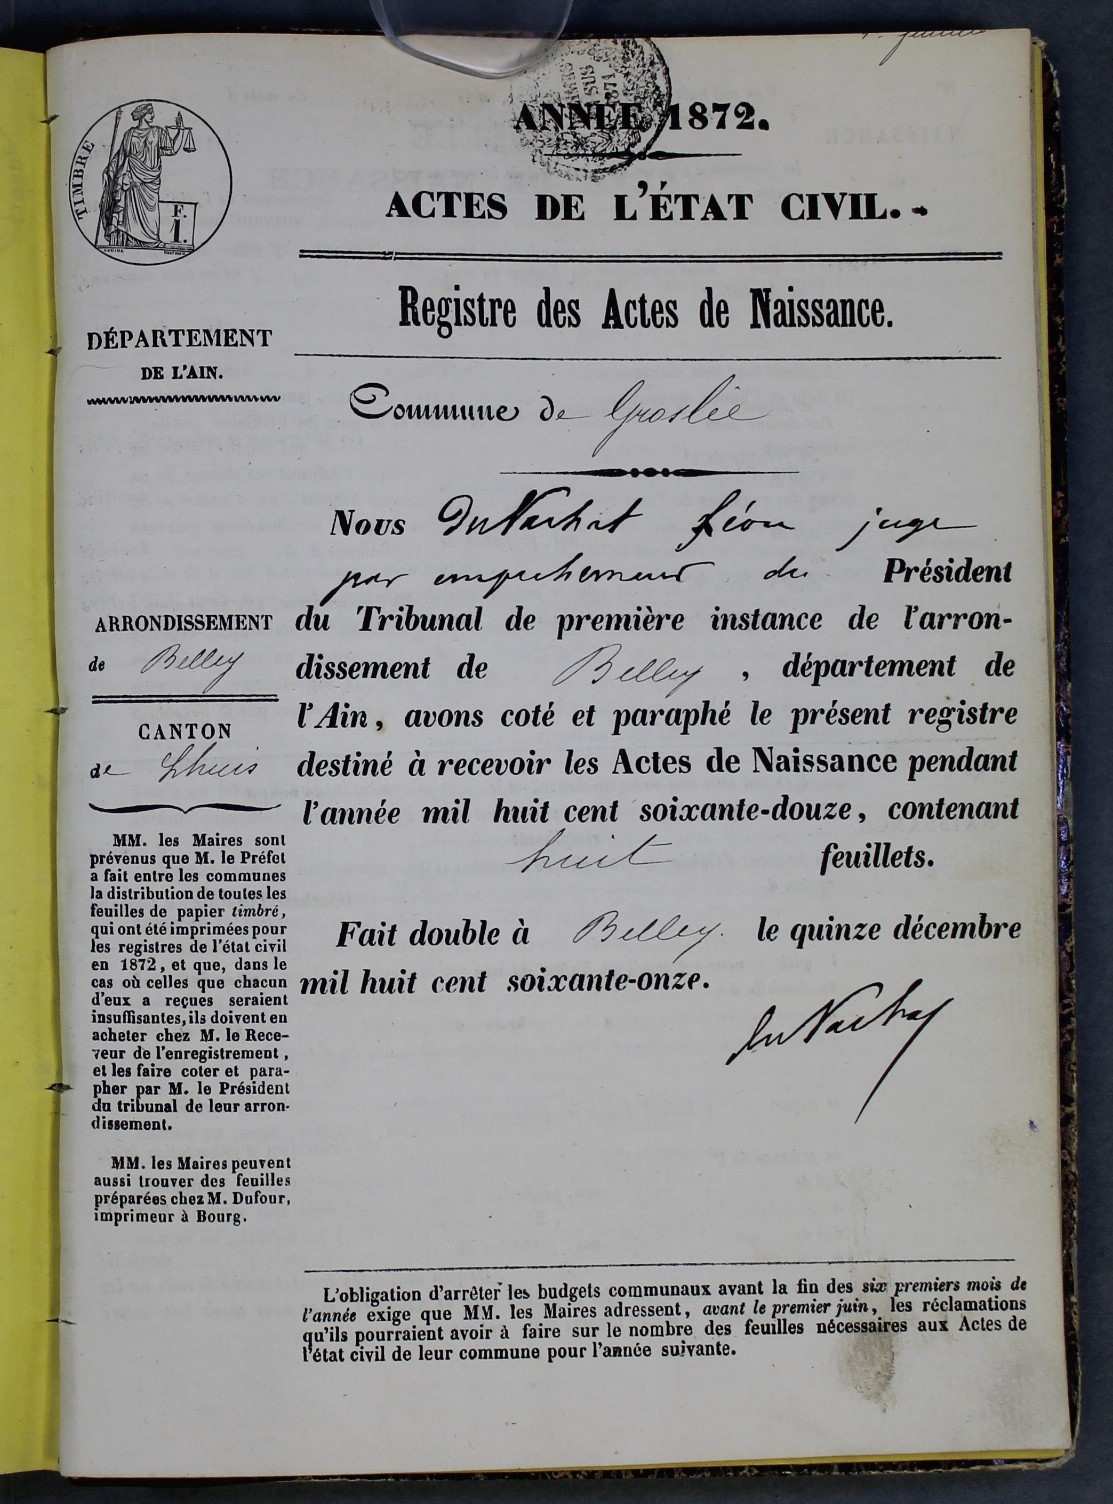 1er feuillet
ANNÉE 1872.
ACTES DE L'ÉTAT CIVIL.
Registre des Actes de Naissance.
TIMBRE
F.
1.
DÉPARTEMENT
DE L'AIN.
Commune de Groslée
Nous DuVachat Léon juge
par empechement du Président
du Tribunal de première instance de l'arron-
dissement de Belley, département de
l'Ain, avons coté et paraphé le présent registre
destiné à recevoir les Actes de Naissance pendant
l'année mil huit cent soixante-douze, contenant
huit feuillets.
Fait double à Belley. le quinze décembre
mil huit cent soixante-onze.
DuVachat
ARRONDISSEMENT
de Belley
CANTON
de Lhuis
MM. les Maires sont
prévenus que M. le Préfet
a fait entre les communes
la distribution de toutes les
feuilles de papier timbré,
qui ont été imprimées pour
les registres de l'état civil
en 1872, et que, dans le
cas où celles que chacun
d'eux a reçues seraient
insuffisantes, ils doivent en
acheter chez M. le Rece-
veur de l'enregistrement,
et les faire coter et para-
pher par M. le Président
du tribunal de leur arron-
dissement.
MM. les Maires peuvent
aussi trouver des feuilles
préparées chez M. Dufour,
imprimeur à Bourg.
L'obligation d'arrêter les budgets communaux avant la fin des six premiers mois de
l'année exige que MM. les Maires adressent, avant le premier juin, les réclamations
qu'ils pourraient avoir à faire sur le nombre des feuilles nécessaires aux Actes de
l'état civil de leur commune pour l'année suivante.